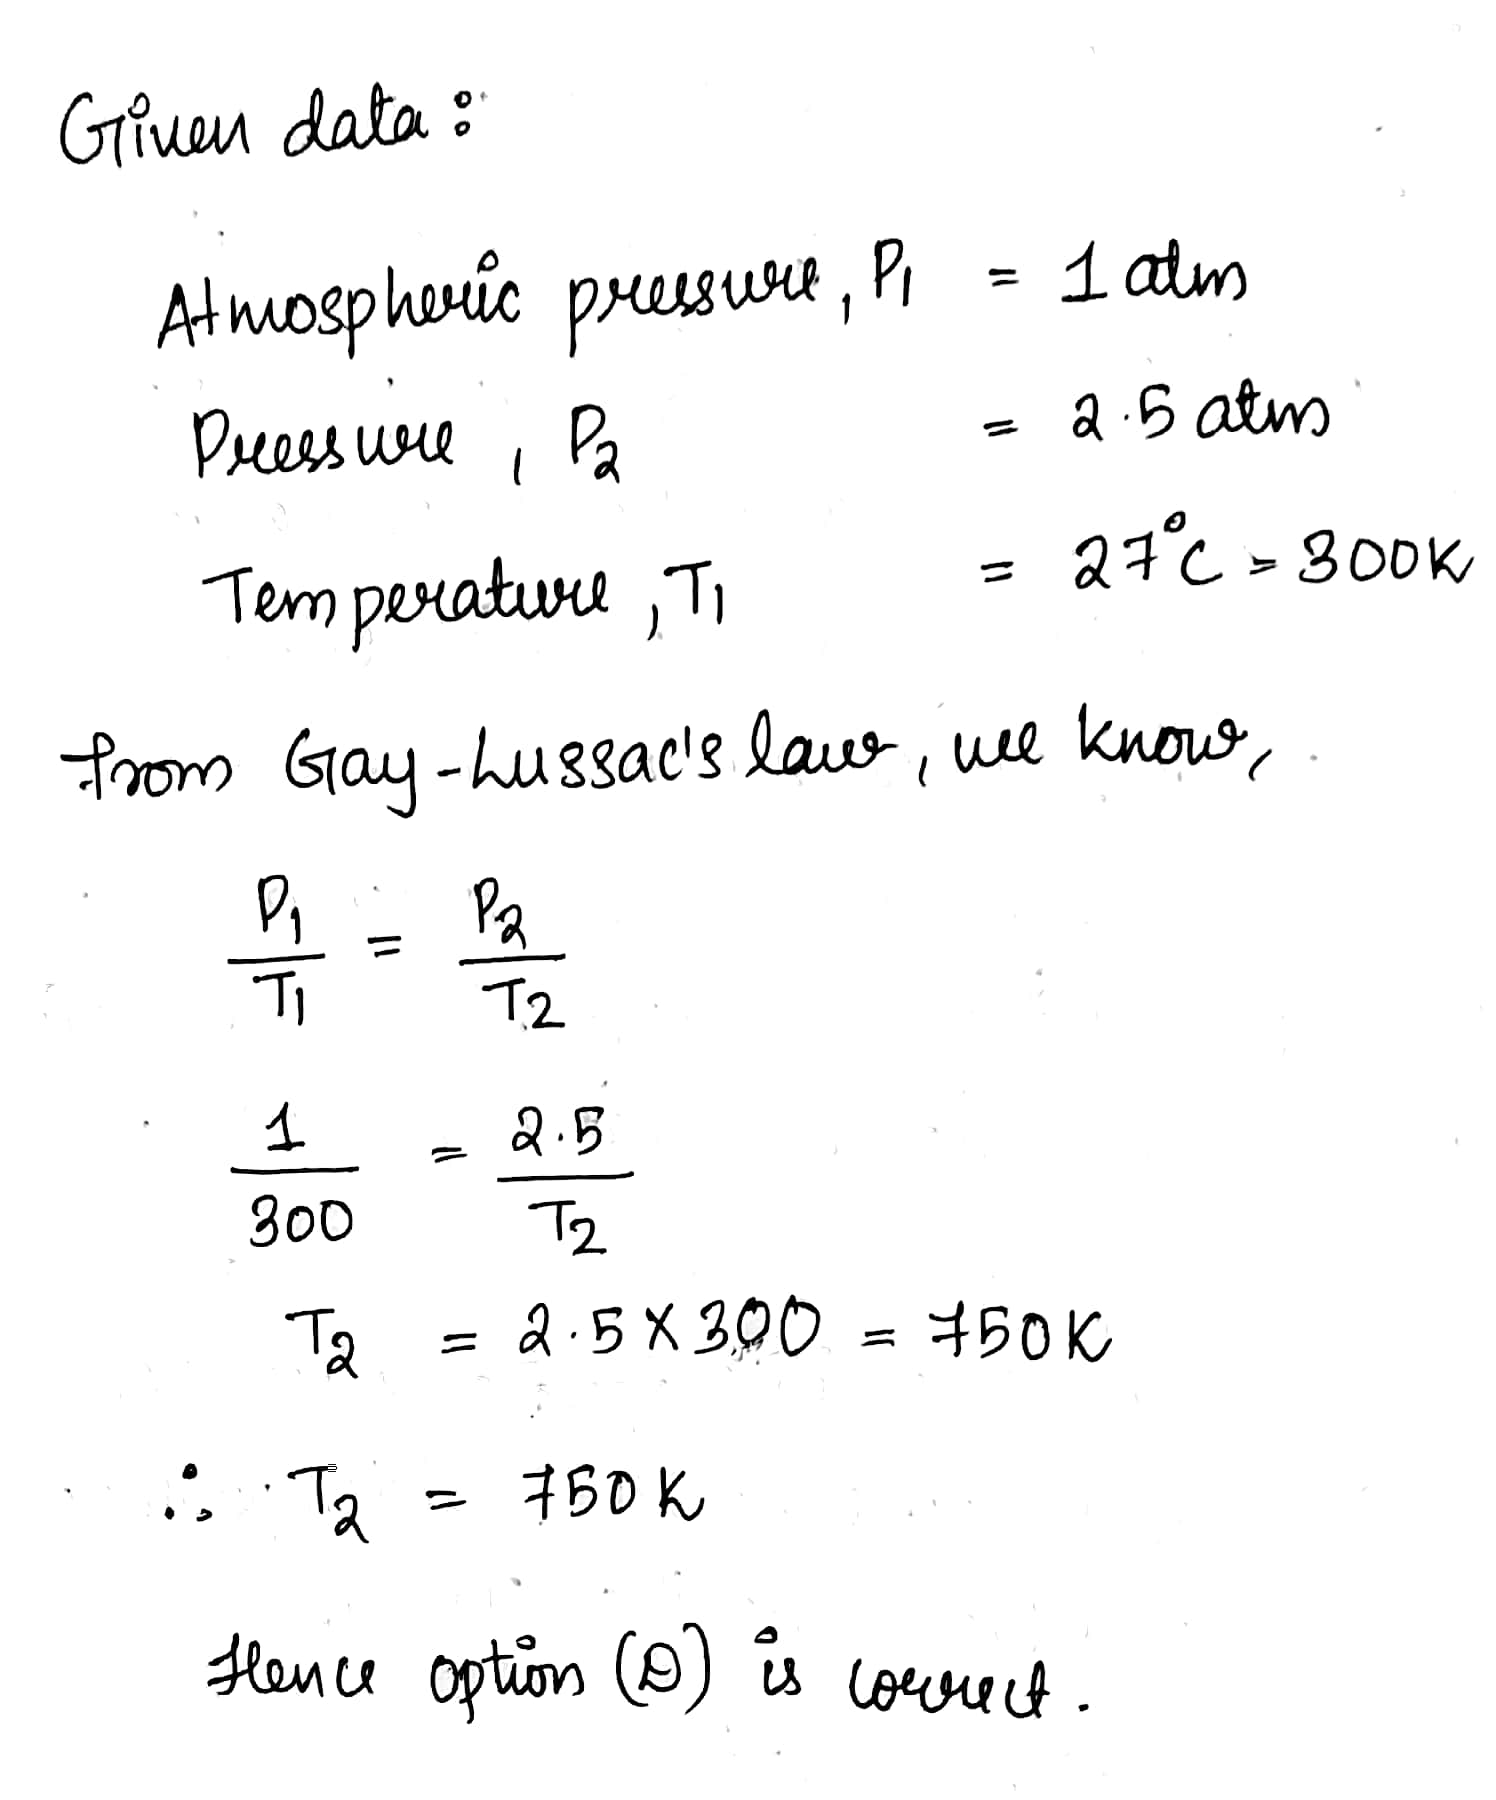 Given data :
Atmospheric pressure, P₁ = 1 atm
Pressure, P₂ = 2.5 atm
Temperature, T₁ = 27°C = 300K
From Gay-Lussac's law, we know,
P₁/T₁ = P₂/T₂
1/300 = 2.5/T₂
T₂ = 2.5 X 300 = 750K
∴ T₂ = 750K
Hence option (D) is correct.